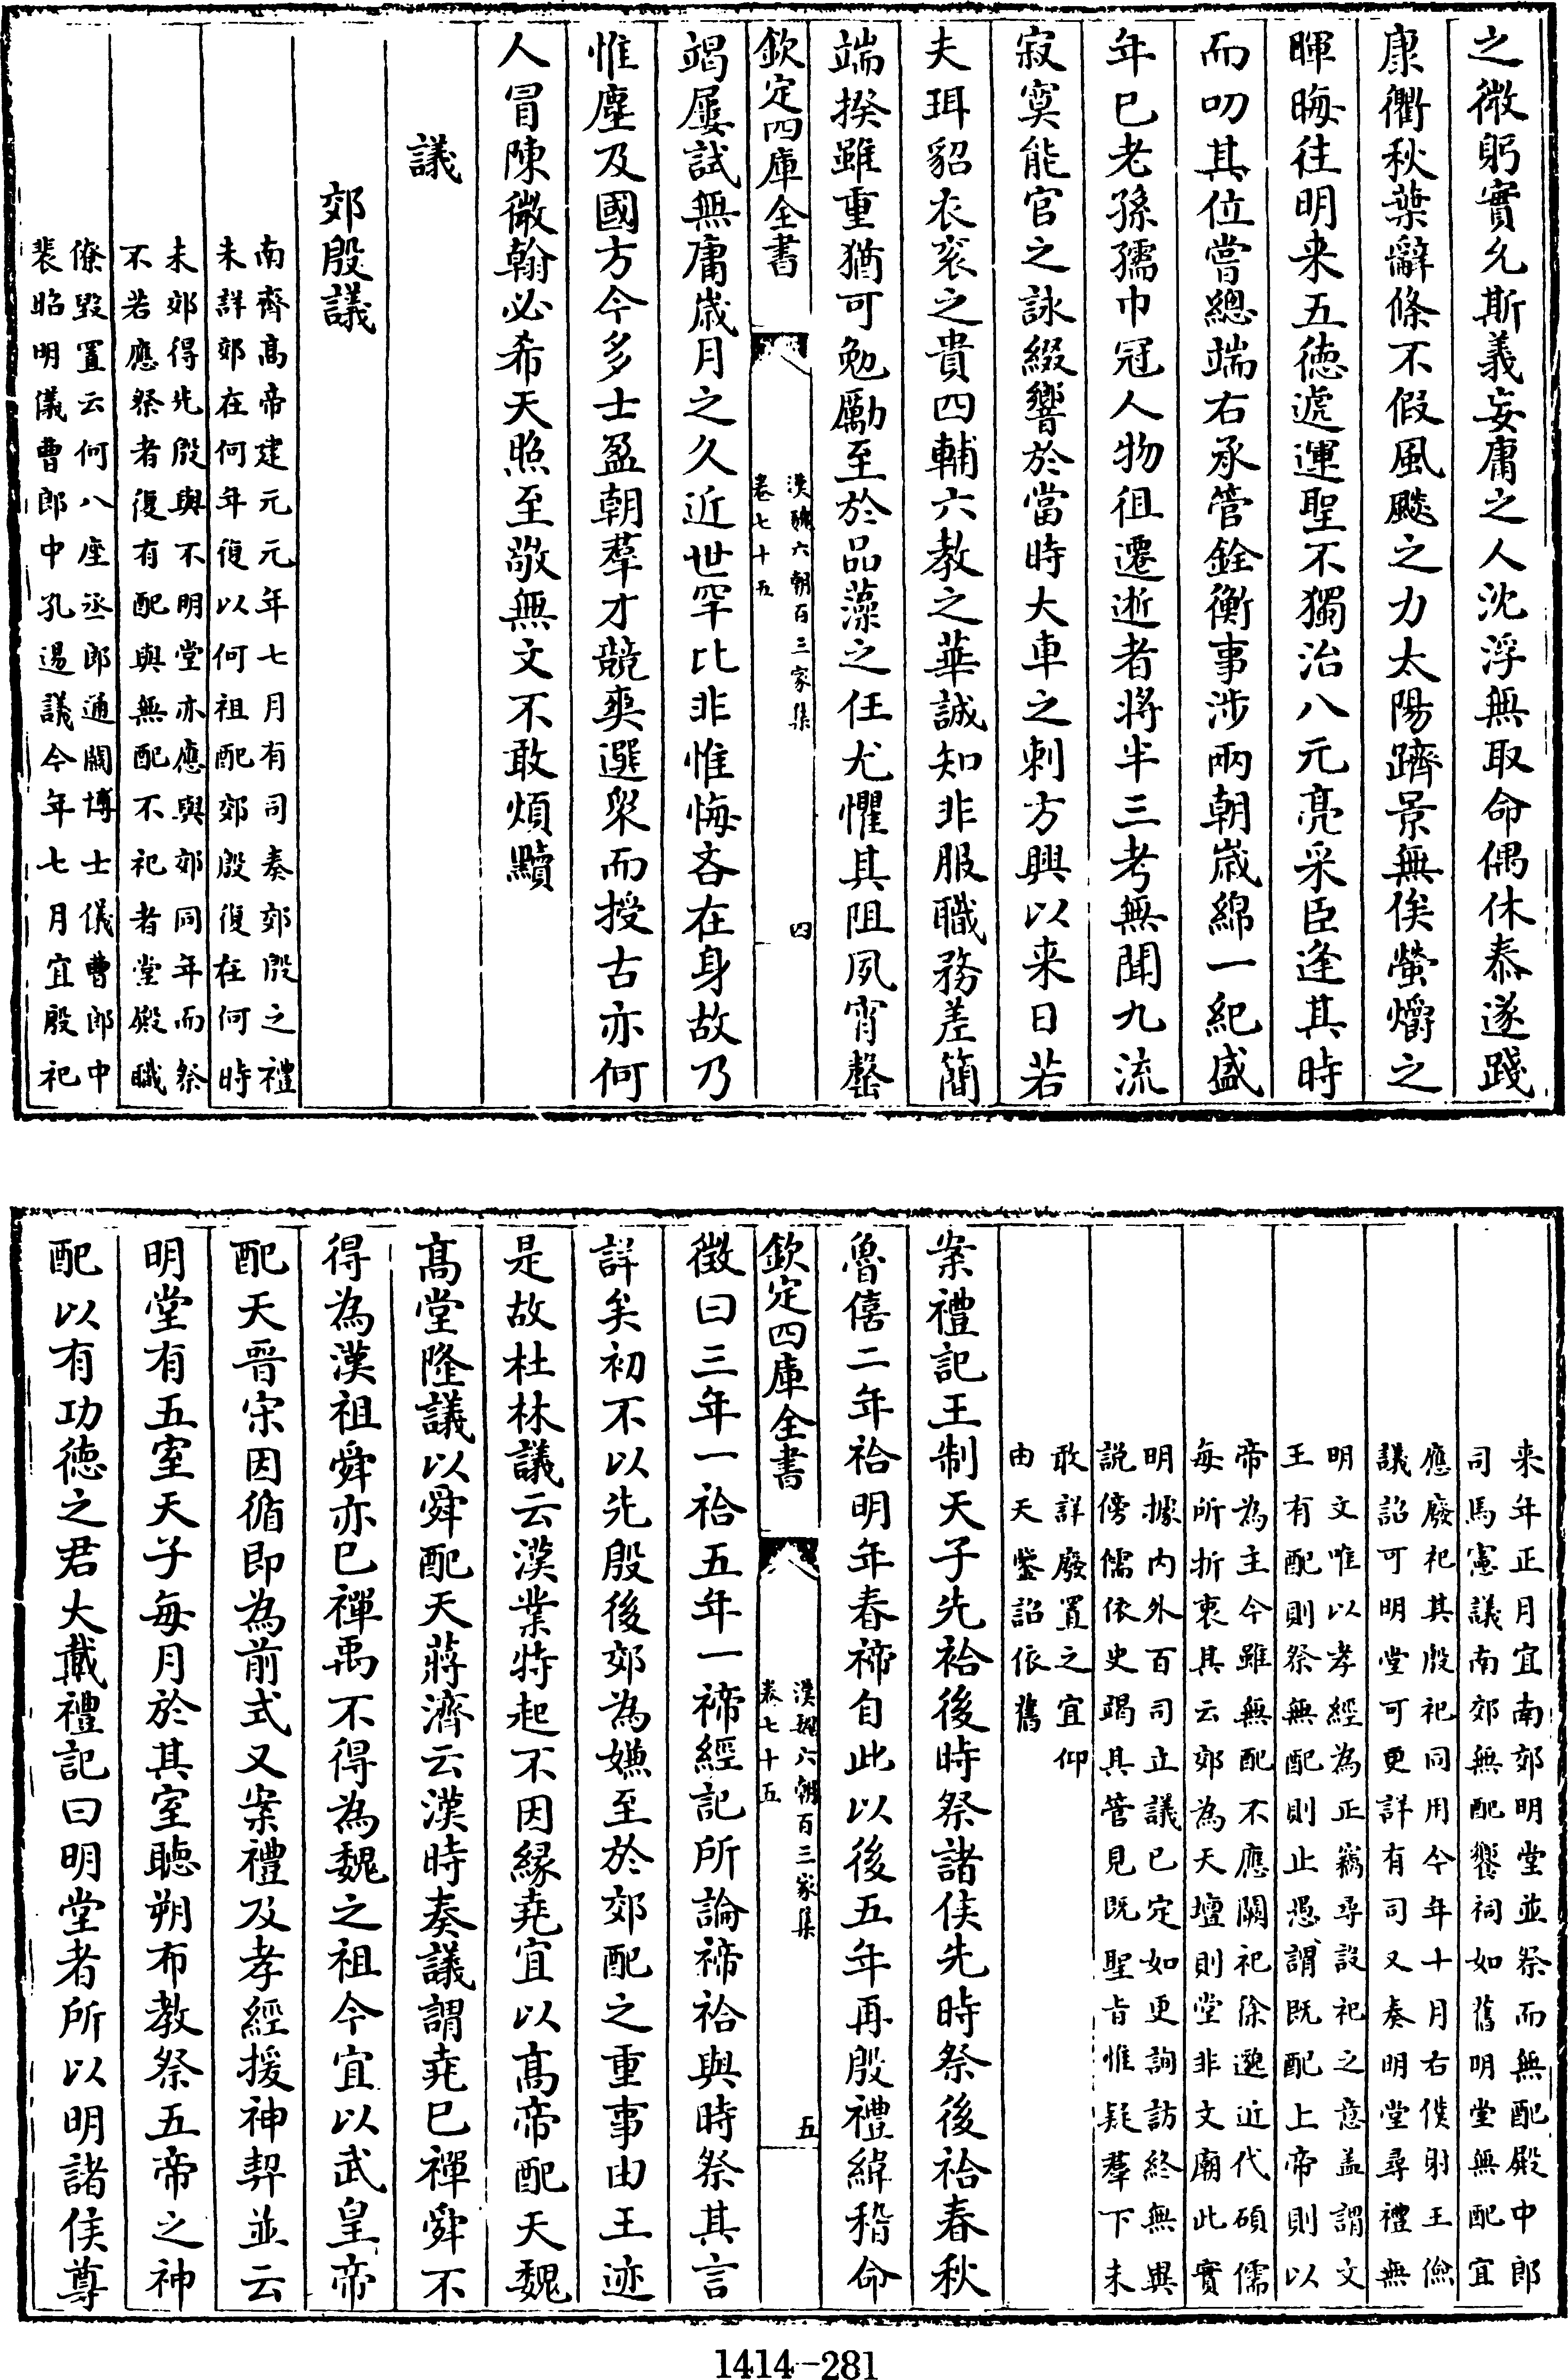 之微躬實允斯義妄庸之人沈浮無取命偶休泰遂踐
康衢秋葉辭條不假風飇之力太陽躋景無俟螢爝之
暉晦往明来五徳遞運聖不獨治八元亮采臣逢其時
而叨其位嘗總端右承管銓衡事涉兩朝嵗綿一紀盛
年已老孫孺巾冠人物徂遷逝者將半三考無聞九流
寂寞能官之詠綴響於當時大車之刺方興以来日若
夫珥貂衣衮之貴四輔六教之華誠知非服職務差簡
端揆雖重猶可勉勵至於品藻之任尤懼其阻夙宵罄
欽定四庫全書
漢魏六朝百三家集
卷七十五
四
竭屢試無庸嵗月之久近世罕比非惟悔吝在身故乃
惟塵及國方今多士盈朝羣才競爽選衆而授古亦何
人冒陳微翰必希天照至敬無文不敢煩黷
議
郊殷議
南齊髙帝建元元年七月有司奏郊殷之禮
未詳郊在何年復以何祖配郊殷復在何時
未郊得先殷與不明堂亦應與郊同年而祭
不若應祭者復有配與無配不祀者堂殿職
僚毀置云何八座丞郎通關博士儀曹郎中
裴昭明儀曹郎中孔逷議今年七月宜殷祀
来年正月宜南郊明堂並祭而無配殿中郎
司馬憲議南郊無配饗祠如舊明堂無配宜
應廢祀其殷祀同用今年十月右僕射王儉
議詔可明堂可更詳有司又奏明堂尋禮無
明文唯以孝經為正竊尋設祀之意盖謂文
王有配則祭無配則止愚謂既配上帝則以
帝為主今雖無配不應闕祀徐邈近代碩儒
每所折衷其云郊為天壇則堂非文廟此實
明據内外百司立議已定如更詢訪終無異
說傍儒依史竭其管見既聖旨惟疑羣下未
敢詳廢置之宜仰
由天鑒詔依舊
案禮記王制天子先祫後時祭諸侯先時祭後祫春秋
魯僖二年祫明年春禘自此以後五年再殷禮緯稽命
欽定四庫全書
漢魏六朝百三家集
卷七十五
五
徵曰三年一祫五年一禘經記所論禘祫與時祭其言
詳矣初不以先殷後郊為嫌至於郊配之重事由王迹
是故杜林議云漢業特起不因縁堯宜以髙帝配天魏
髙堂隆議以舜配天蔣濟云漢時奏議謂堯已禪舜不
得為漢祖舜亦已禪禹不得為魏之祖今宜以武皇帝
配天晋宋因循即為前式又案禮及孝經援神契並云
明堂有五室天子每月於其室聽朔布教祭五帝之神
配以有功徳之君大戴禮記曰明堂者所以明諸侯尊
1414-281